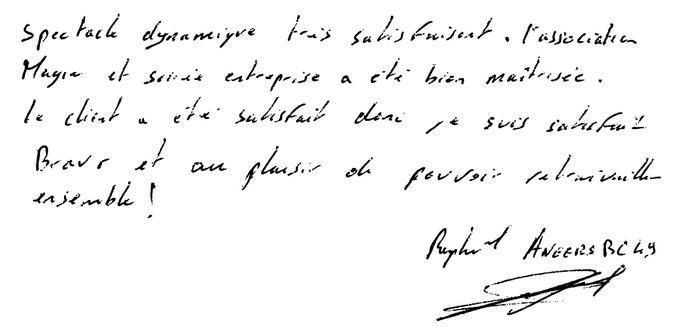 Spectacle dynamique très satisfaisant. l'association
Magie et soirée entreprise a été bien maîtrisée.
le client a été satisfait donc je suis satisfait
Bravo et au plaisir de pouvoir retravailler
ensemble !
Raphaël